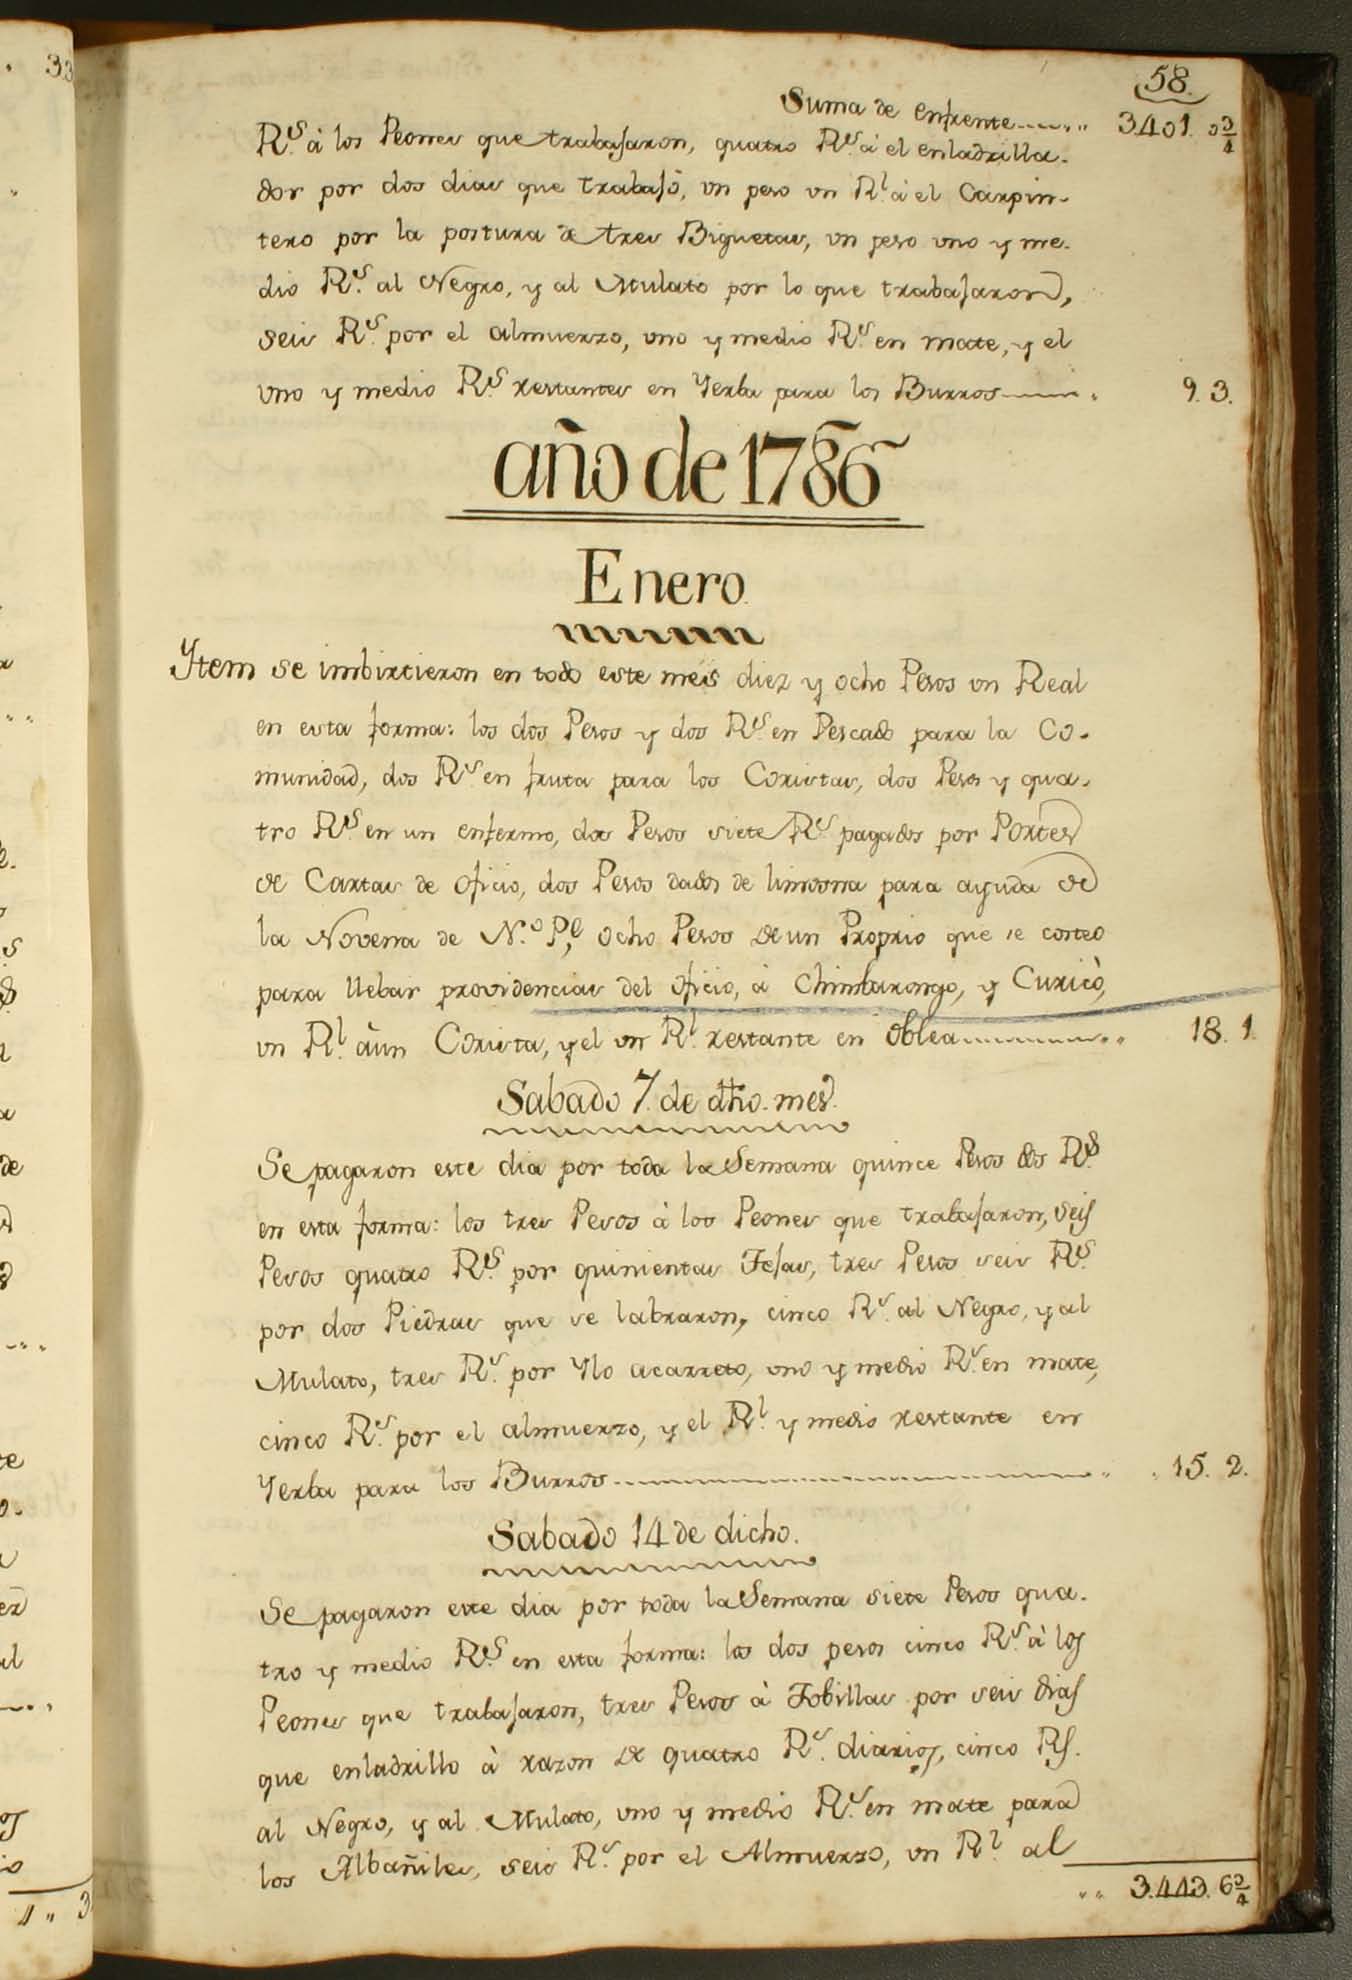 33
58.
Suma de enfrente 3401. 0¾
R.s à los Peones que trabajaron, quatro R.s à el enladrilla-
dor por dos dias que trabajò, un peso un R.l à el Carpin-
tero por la postura de tres Biguetas, un peso uno y me-
dio R.s al Negro, y al Mulato por lo que trabajaron,
seis R.s por el almuerzo, uno y medio R.s en mate, y el
uno y medio R.s restantes en Yerba para los Burros 9. 3.
año de 1786
Enero
Ytem se imbirtieron en todo este mes diez y ocho Pesos un Real
en esta forma: los dos Pesos y dos R.s en Pescado para la Co-
munidad, dos R.s en fruta para los Coristas, dos Pesos y qua-
tro R.s en un enfermo, dos Pesos siete R.s pagados por Portes
de Cartas de oficio, dos Pesos dados de limosna para ayuda de
la Novena de N.o P.e ocho Pesos de un Proprio que se costeo
para llebar providencias del oficio, à Chimbarongo, y Curicò,
un R.l àun Corista, y el un R.l restante en oblea 18. 1.
Sabado 7. de dho. mes.
Se pagaron este dia por toda la Semana quince Pesos dos R.s
en esta forma: los tres Pesos à los Peones que trabajaron, seis
Pesos quatro R.s por quinientas Tejas, tres Pesos seis R.s
por dos Piedras que se labraron, cinco R.s al Negro, y al
Mulato, tres R.s por Ylo acarreto, uno y medio R.s en mate,
cinco R.s por el almuerzo, y el R.l y medio restante en
Yerba para los Burros 15. 2.
Sabado 14 de dicho.
Se pagaron este dia por toda la Semana siete Pesos qua-
tro y medio R.s en esta forma: los dos pesos cinco R.s à los
Peones que trabajaron, tres Pesos à Tobillas por seis dias
que enladrillo à razon de quatro R.s diarios, cinco Rs.
al Negro, y al Mulato, uno y medio R.s en mate para
los Albañiles, seis R.s por el Almuerzo, un R.l al
3.443. 6¾